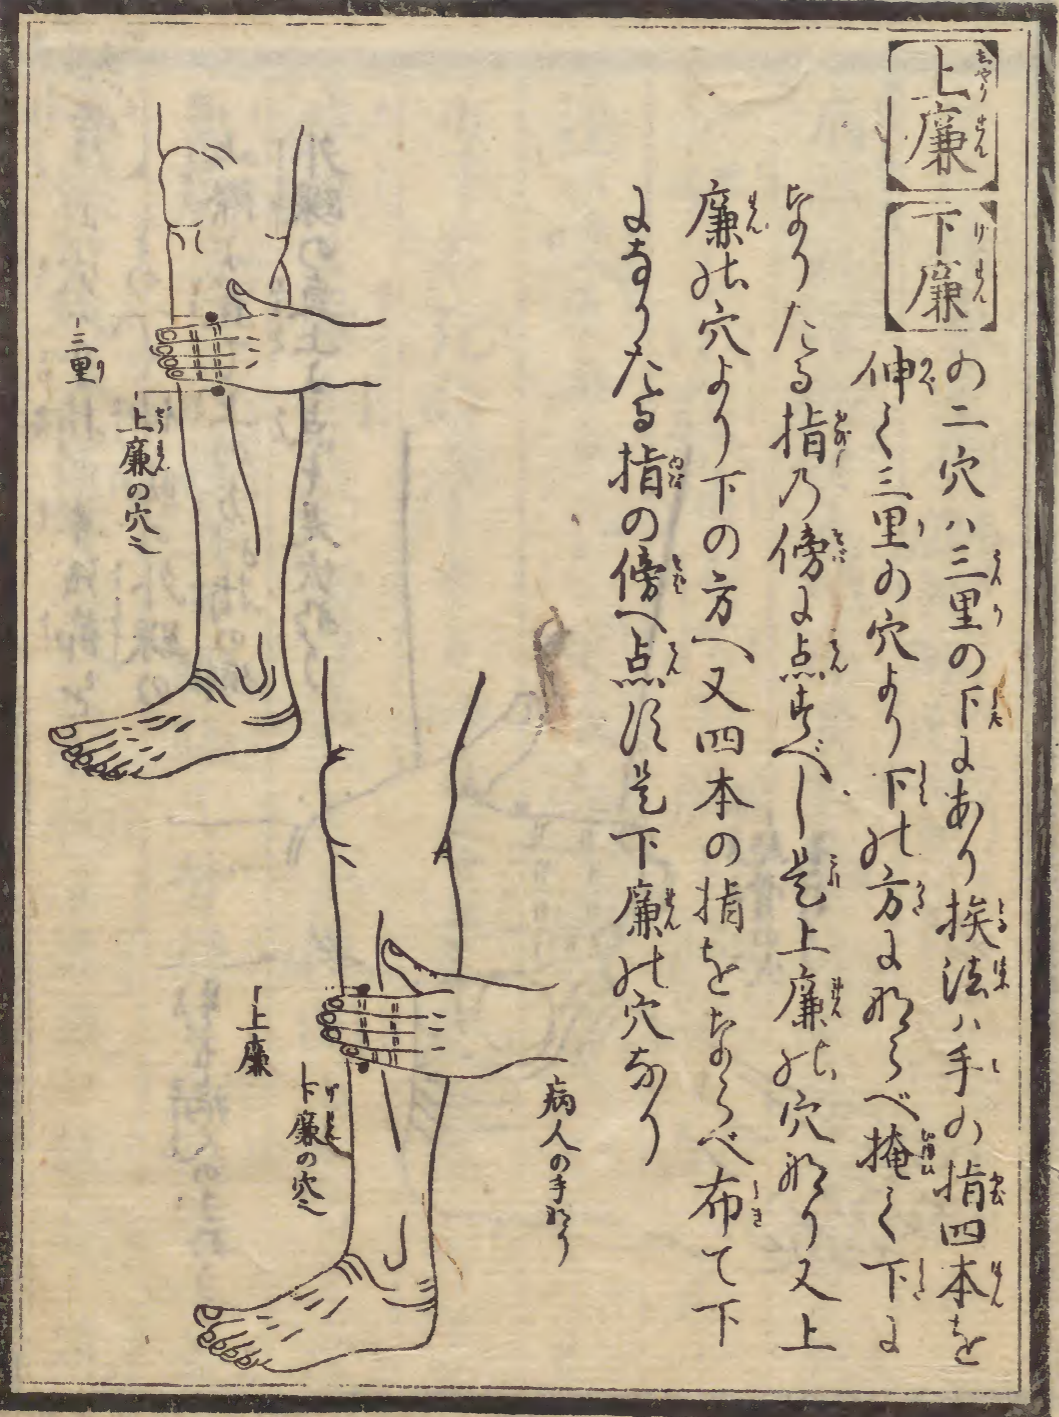 上廉 下廉
の二穴ハ三里の下にあり挨法ハ手の指四本を
伸て三里の穴より下の方にならべ掩て下に
なりたる指乃傍に点すべし是上廉の穴なり又上
廉の穴より下の方へ又四本の指をならべ布て下
になりたる指の傍へ点ず是下廉の穴なり
三里
上廉の穴也
上廉
下廉の穴也
病人の手なり